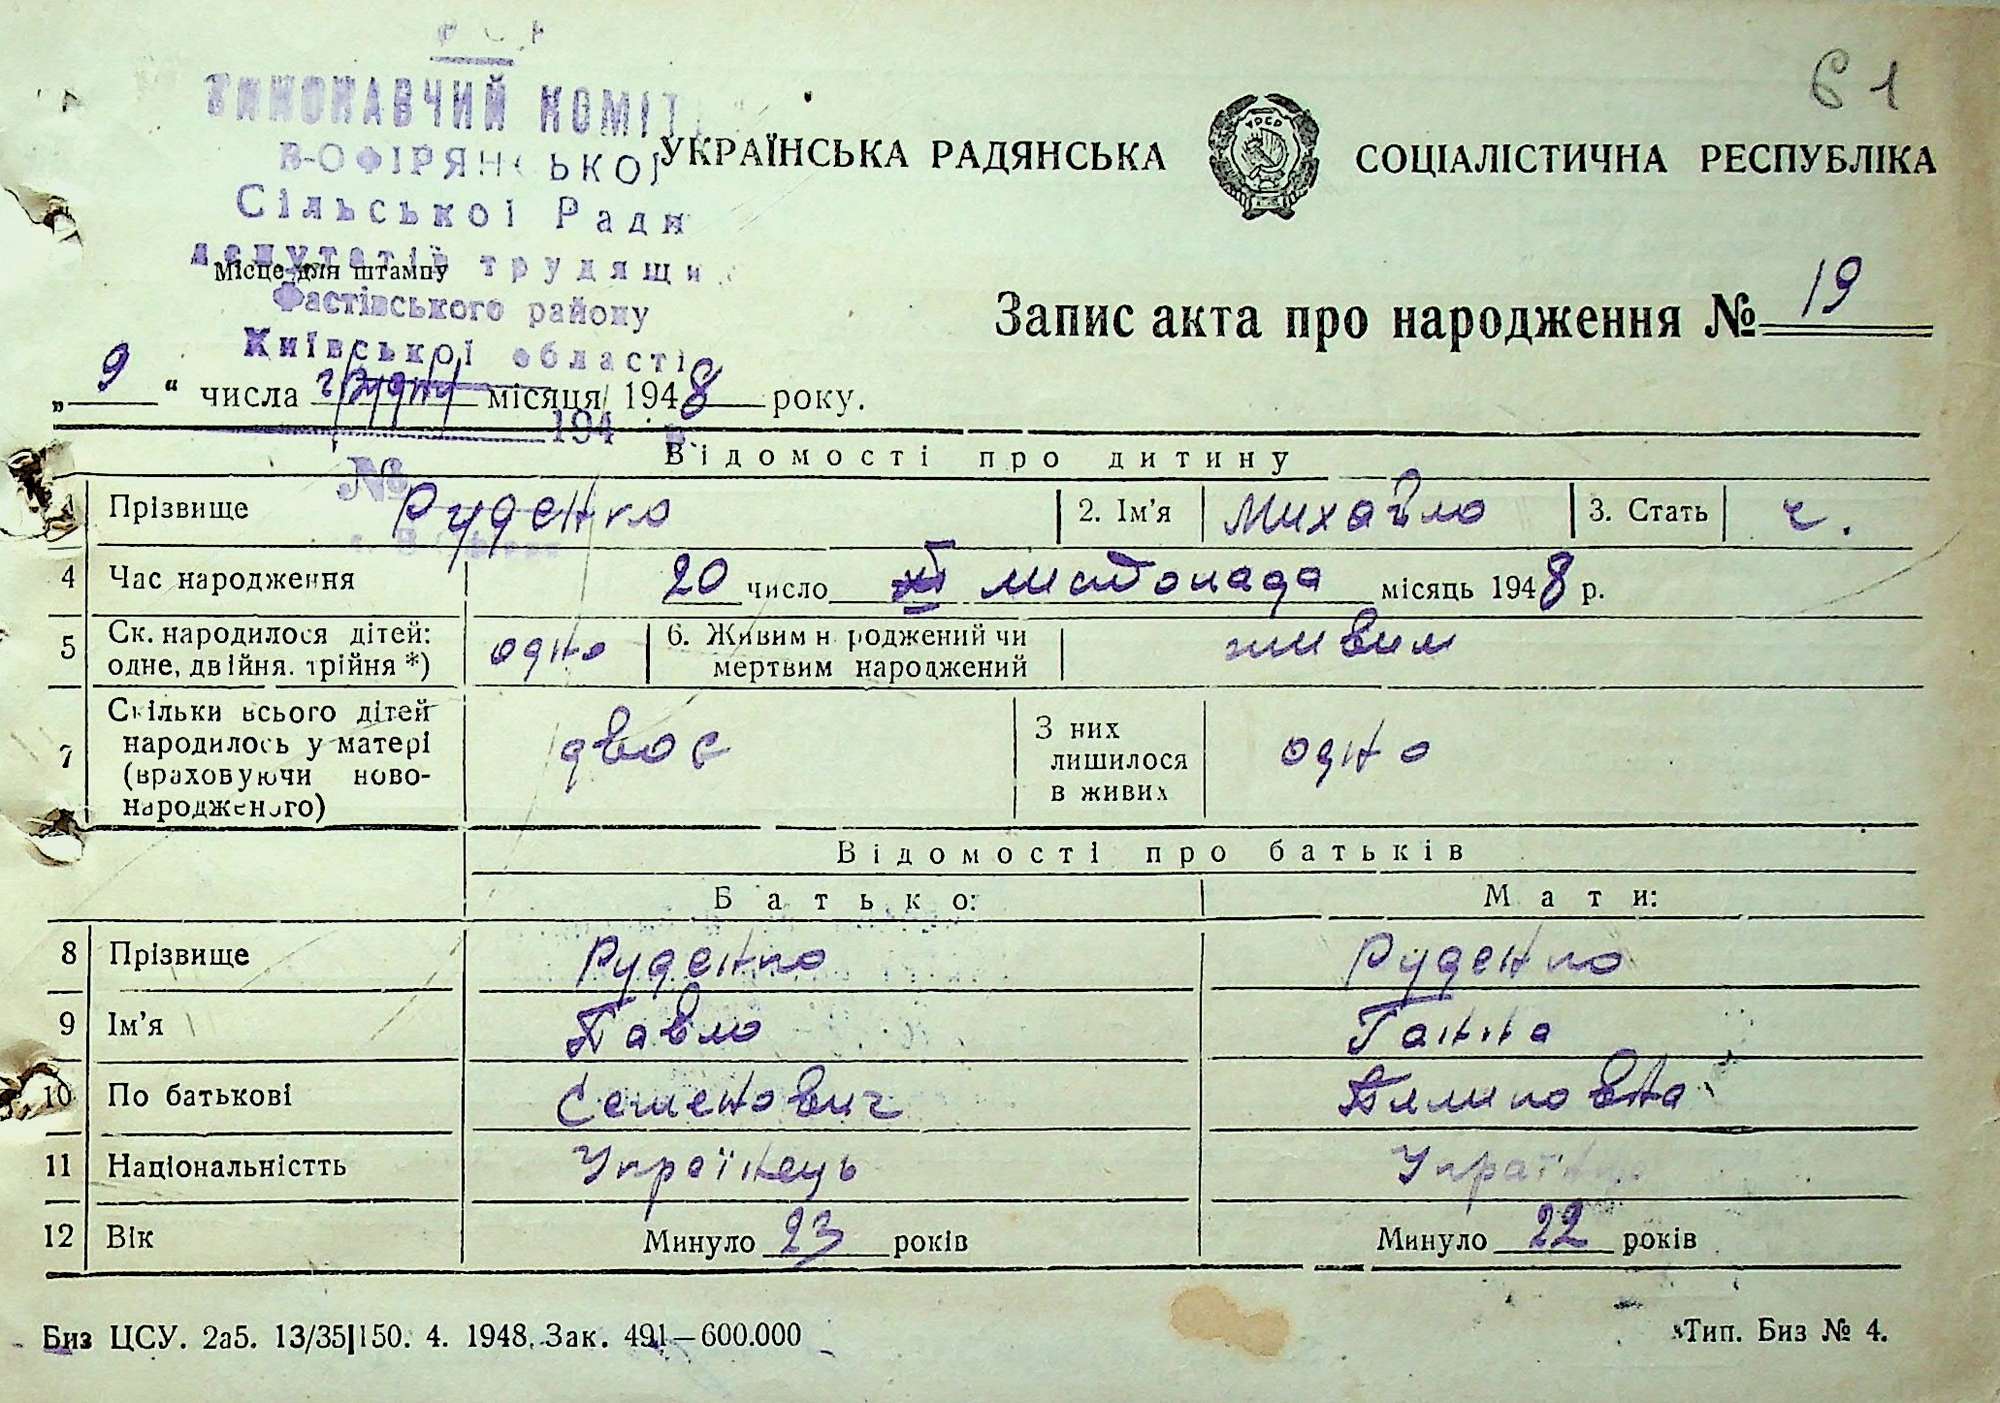 61
ВИКОНАВЧИЙ КОМІТ
В-ОФІРЯНСЬКОЇ
Сільської Ради
депутатів трудящи
Фастівського району
Київської області
194 р.
№
УКРАЇНСЬКА РАДЯНСЬКА СОЦІАЛІСТИЧНА РЕСПУБЛІКА
Місце для штампу
Запис акта про народження № 19
„9“ числа грудня місяця 1948 року.
Відомості про дитину
1 Прізвище Руденко 2. Ім'я Михайло 3. Стать ч.
4 Час народження 20 число XI листопада місяць 1948 р.
5 Ск. народилося дітей: одне, двійня. трійня *) одно 6. Живим народжений чи мертвим народжений живим
7 Скільки всього дітей народилось у матері (враховуючи ново-народженого) двоє З них лишилося в живих одно
Відомості про батьків
Батько: Мати:
8 Прізвище Руденко Руденко
9 Ім'я Павло Ганна
10 По батькові Семенович
11 Національністть Українець Українка
12 Вік Минуло 23 років Минуло 22 років
Биз ЦСУ. 2а5. 13/35|150. 4. 1948. Зак. 491—600.000 Тип. Биз № 4.